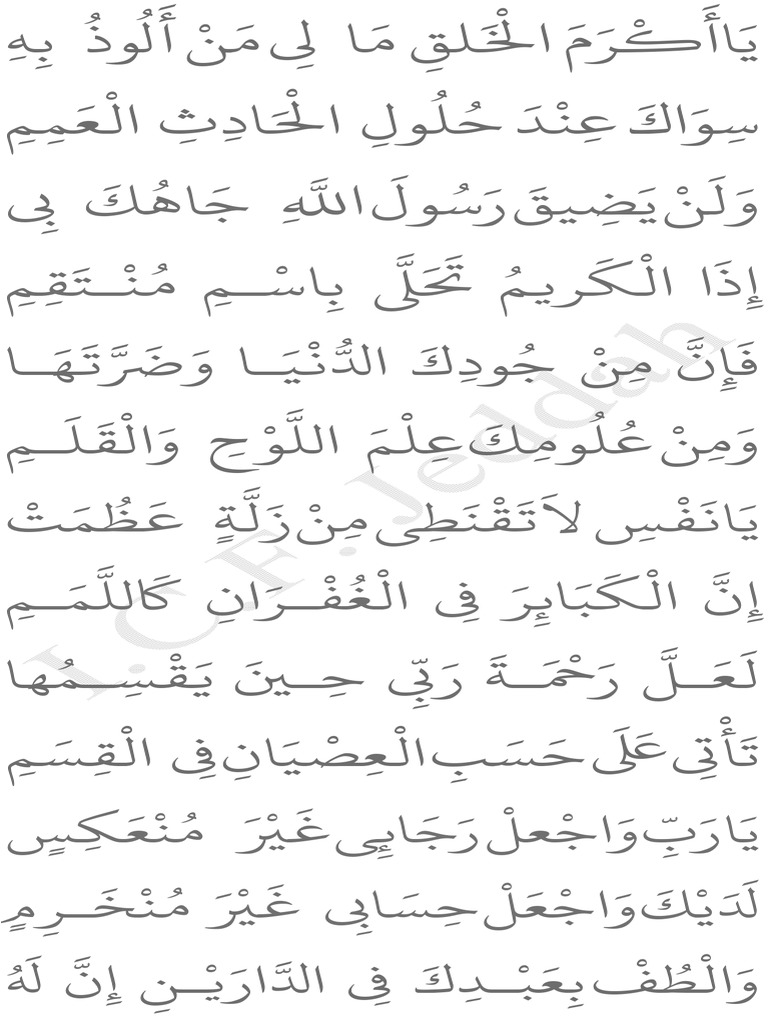 يَاأَكْرَمَ الْخَلقِ مَا لِى مَنْ أَلُوذُ بِهِ
سِوَاكَ عِنْدَ حُلُولِ الْحَادِثِ الْعَمِمِ
وَلَنْ يَضِيقَ رَسُولَ اللَّهِ جَاهُكَ بِى
إِذَا الْكَرِيمُ تَحَلَّى بِاسْمِ مُنْتَقِمِ
فَإِنَّ مِنْ جُودِكَ الدُّنْيَا وَضَرَّتَهَا
وَمِنْ عُلُومِكَ عِلْمَ اللَّوْحِ وَالْقَلَمِ
يَانَفْسِ لاَتَقْنَطِى مِنْ زَلَّةٍ عَظُمَتْ
إِنَّ الْكَبَايِرَ فِى الْغُفْرَانِ كَاللَّمَمِ
لَعَلَّ رَحْمَةَ رَبِّي حِينَ يَقْسِمُها
تَأْتِى عَلَى حَسَبِ الْعِصْيَانِ فِى الْقِسَمِ
يَارَبِّ وَاجْعلْ رَجَايِى غَيْرَ مُنْعَكِسٍ
لَدَيْكَ وَاجْعَلْ حِسَابِى غَيْرَ مُنْخَرِمٍ
وَالْطُفْ بِعَبْدِكَ فِى الدَّارَيْنِ إِنَّ لَهُ
I.C.F. Jeddah